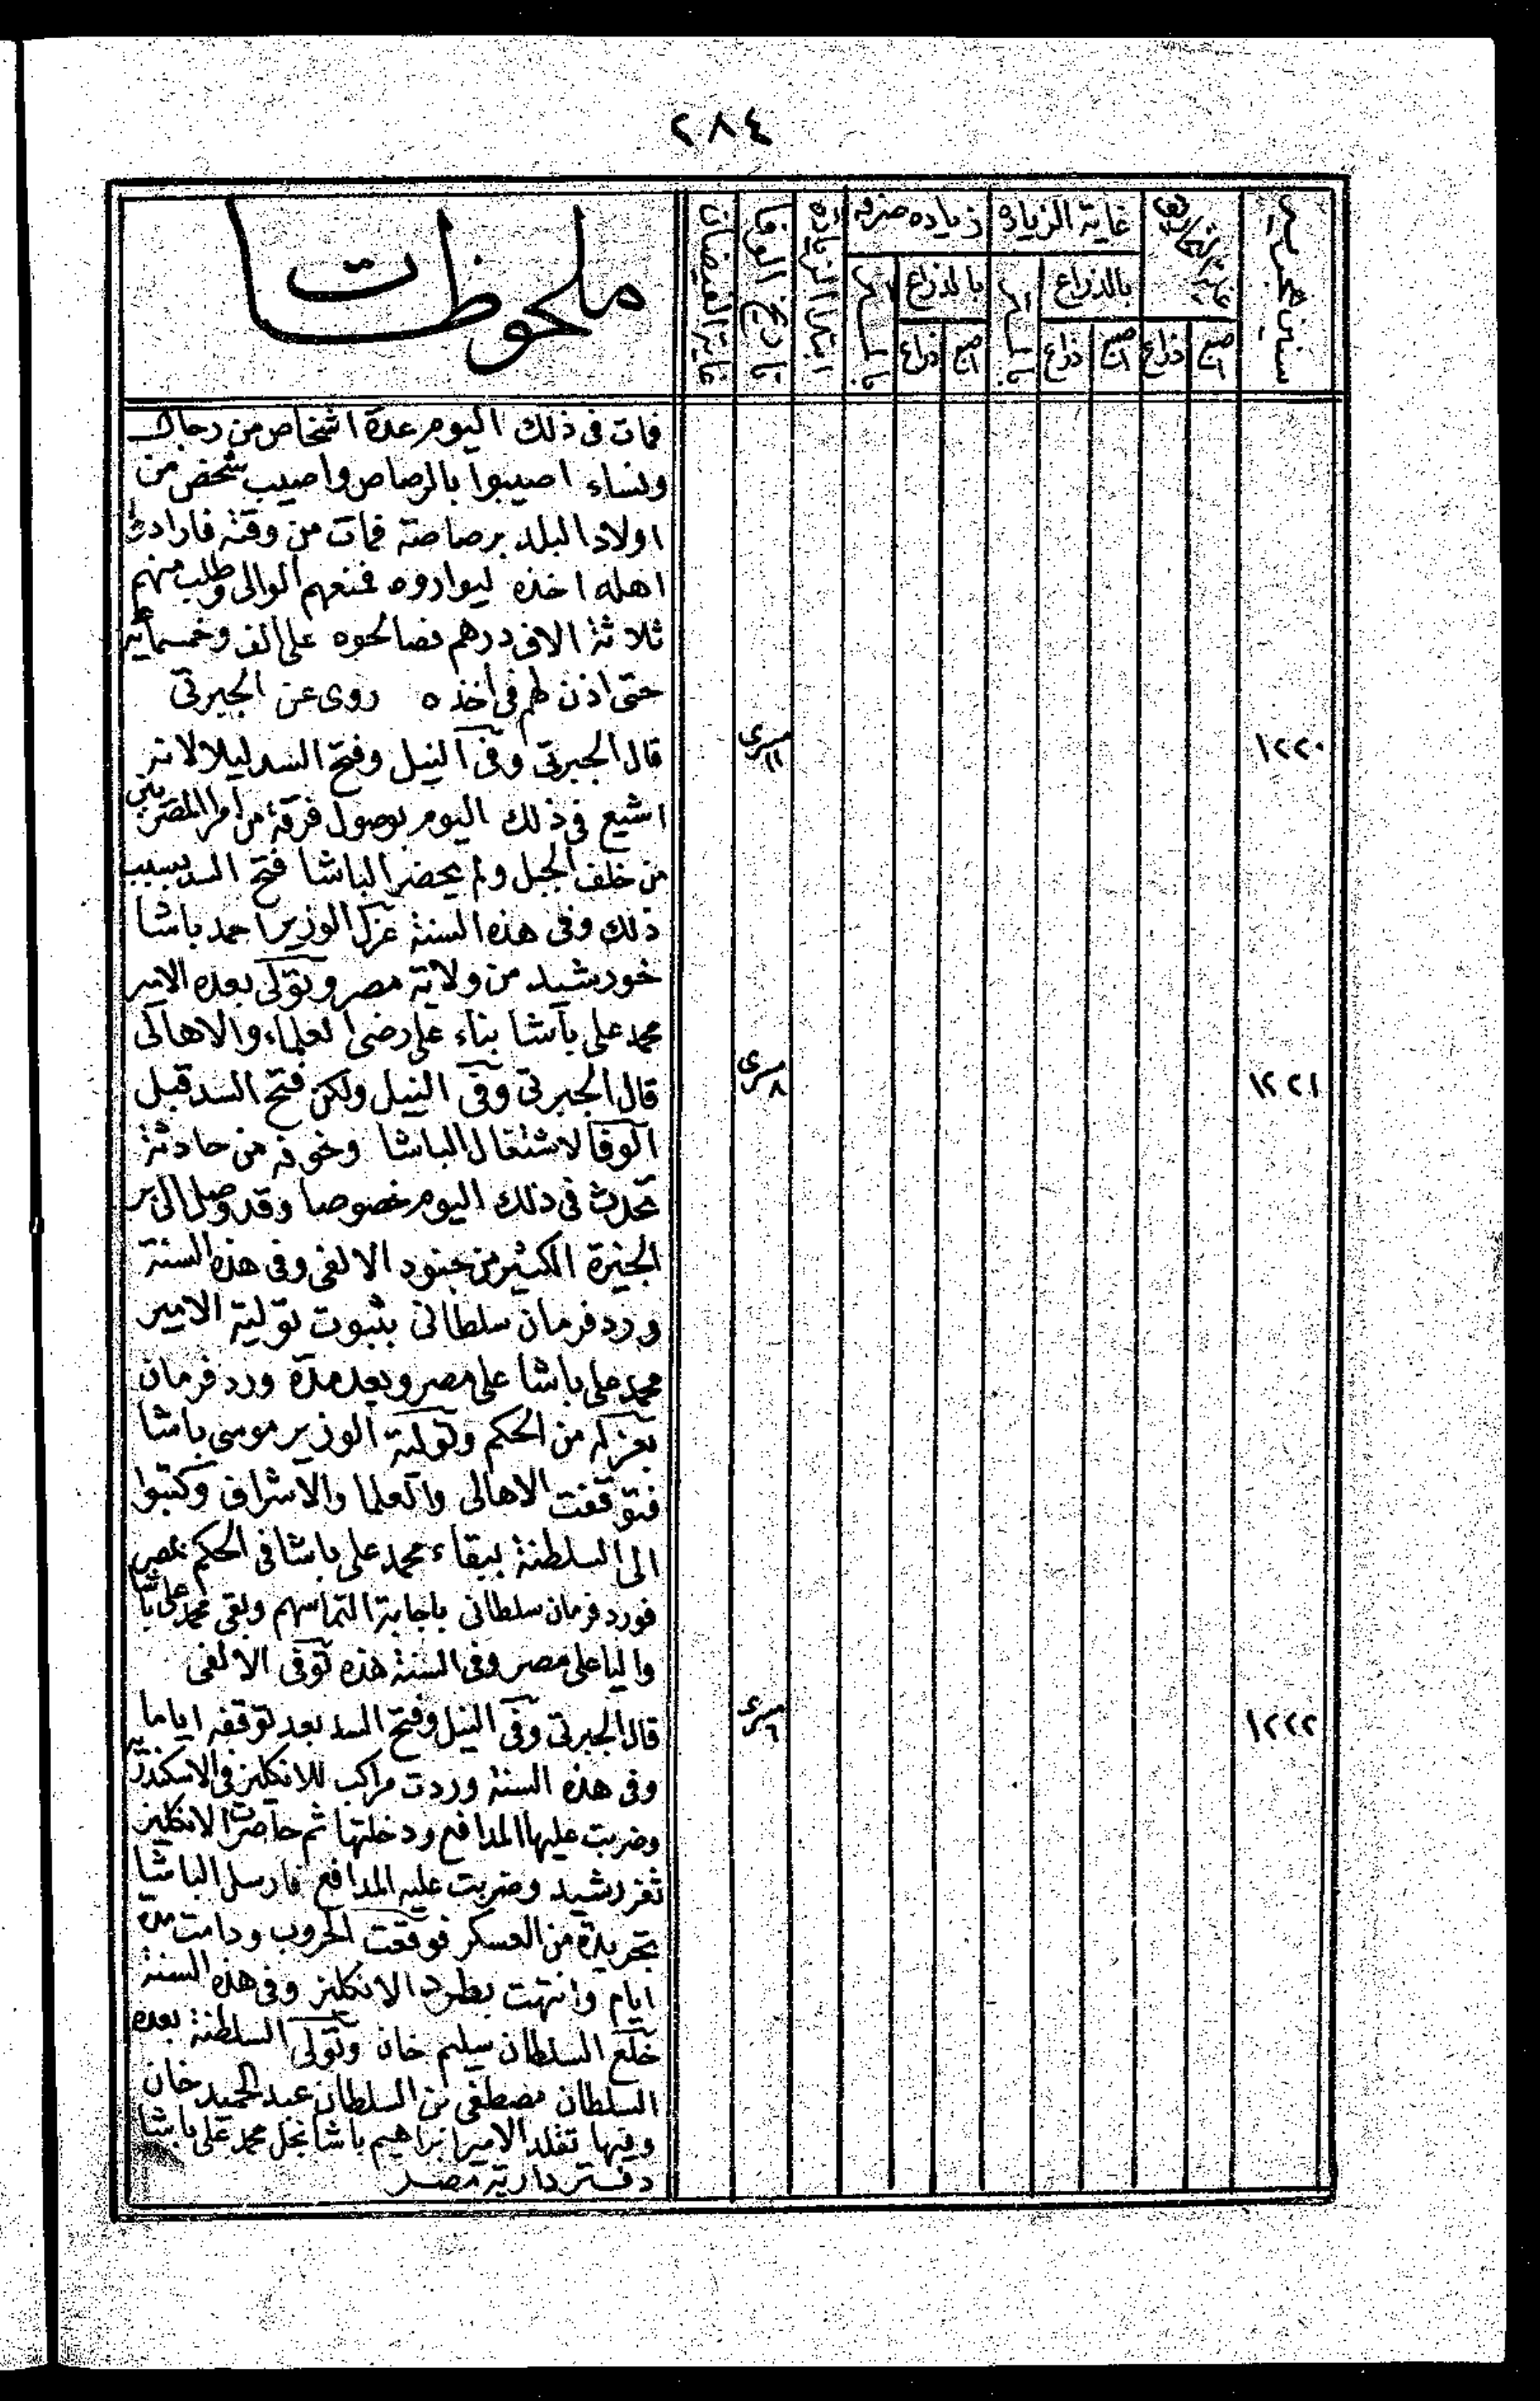 ٢٨٤
سنين هجريه
غاية التحاريق
غاية الزيادة
زياده صرفه
ابتدا الزياده
تاريخ الوفا
غاية الفيضان
ملحوظات
بالذراع
بالذراع
اصبع
ذراع
اصبع
ذراع
اصبع
ذراع
فمات فى ذلك اليوم عدة اشخاص من رجال
ونساء اصيبوا بالرصاص واصيب شخص من
اولاد البلد برصاصة فمات من وقته فارادت
اهله اخذه ليواروه فمنعهم الوالى وطلب منهم
ثلاثة الاف درهم فصالحوه على الف وخمسمائة
حتى اذن لهم فى اخذه روى عن الجبرتى
١٢٢٠
مسرى ١١
قال الجبرتى وفى النيل وفتح السد ليلا لانه
اشيع فى ذلك اليوم بوصول فرقة من امرا المصريين
من خلف الجبل ولم يحضر الباشا فتح السد بسبب
ذلك وفى هذه السنة عزل الوزير احمد باشا
خورشيد من ولاية مصر وتولى بعده الامير
محمد على باشا بناء على رضى العلماء والاهالى
١٢٢١
مسرى ٨
قال الجبرتى وفى النيل ولكن فتح السد قبل
الوفا لاشتغال الباشا وخوفه من حادثة
تحدث فى ذلك اليوم خصوصا وقد وصل الى بر
الجيزة الكثير من جنود الالفى وفى هذه السنة
ورد فرمان سلطانى بثبوت تولية الامير
محمد على باشا على مصر وبعد مدة ورد فرمان
بعزله من الحكم وتولية الوزير موسى باشا
فتوقفت الاهالى والعلما والاشراف وكتبوا
الى السلطنة ببقاء محمد على باشا فى الحكم بمصر
فورد فرمان سلطانى باجابة التماسهم وبقى محمد على باشا
واليا على مصر وفى السنة هذه توفى الالفى
١٢٢٢
مسرى ٦
قال الجبرتى وفى النيل وفتح السد بعد توقفه اياما
وفى هذه السنة وردت مراكب للانكليز فى الاسكندريه
وضربت عليها المدافع ودخلتها ثم حاصرت الانكليز
ثغر رشيد وضربت عليه المدافع فارسل الباشا
تجريدة من العسكر فوقعت الحروب ودامت مدة
ايام وانتهت بطرد الانكليز وفى هذه السنة
خلع السلطان سليم خان وتولى السلطنة بعده
السلطان مصطفى بن السلطان عبد الحميد خان
وفيها تقلد الامير ابراهيم باشا نجل محمد على باشا
دفتردارية مصر